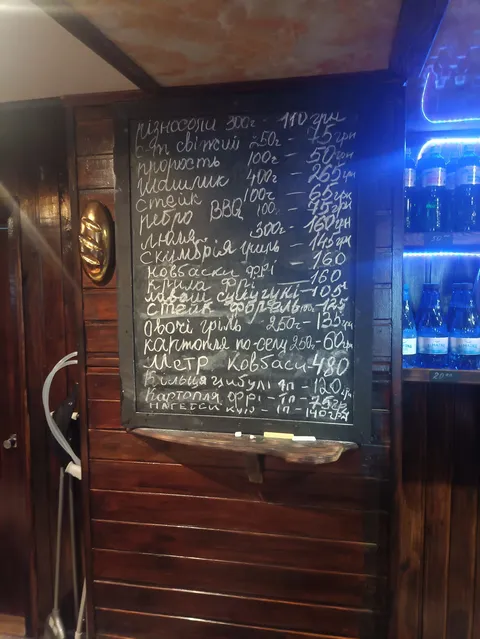 різносоли 300г - 110 грн
свіжий 250г - 75 грн
100г - 50 грн
шашлик 400г - 265 грн
стейк 100г - 65 грн
ребро BBQ 100г - 75 грн
люля 300г - 160 грн
скумбрія гриль - 145 грн
ковбаски фрі - 160
крила фрі - 160
лаваш сулугуні - 105
стейк форель - 135
овочі гриль 250г - 135 грн
картопля по-сель 250г - 60 грн
Метр Ковбаси 480
Кільця цибулі 1п - 120 грн
Картопля фрі - 1п - 75 гр
нагетси кур - 1п - 140